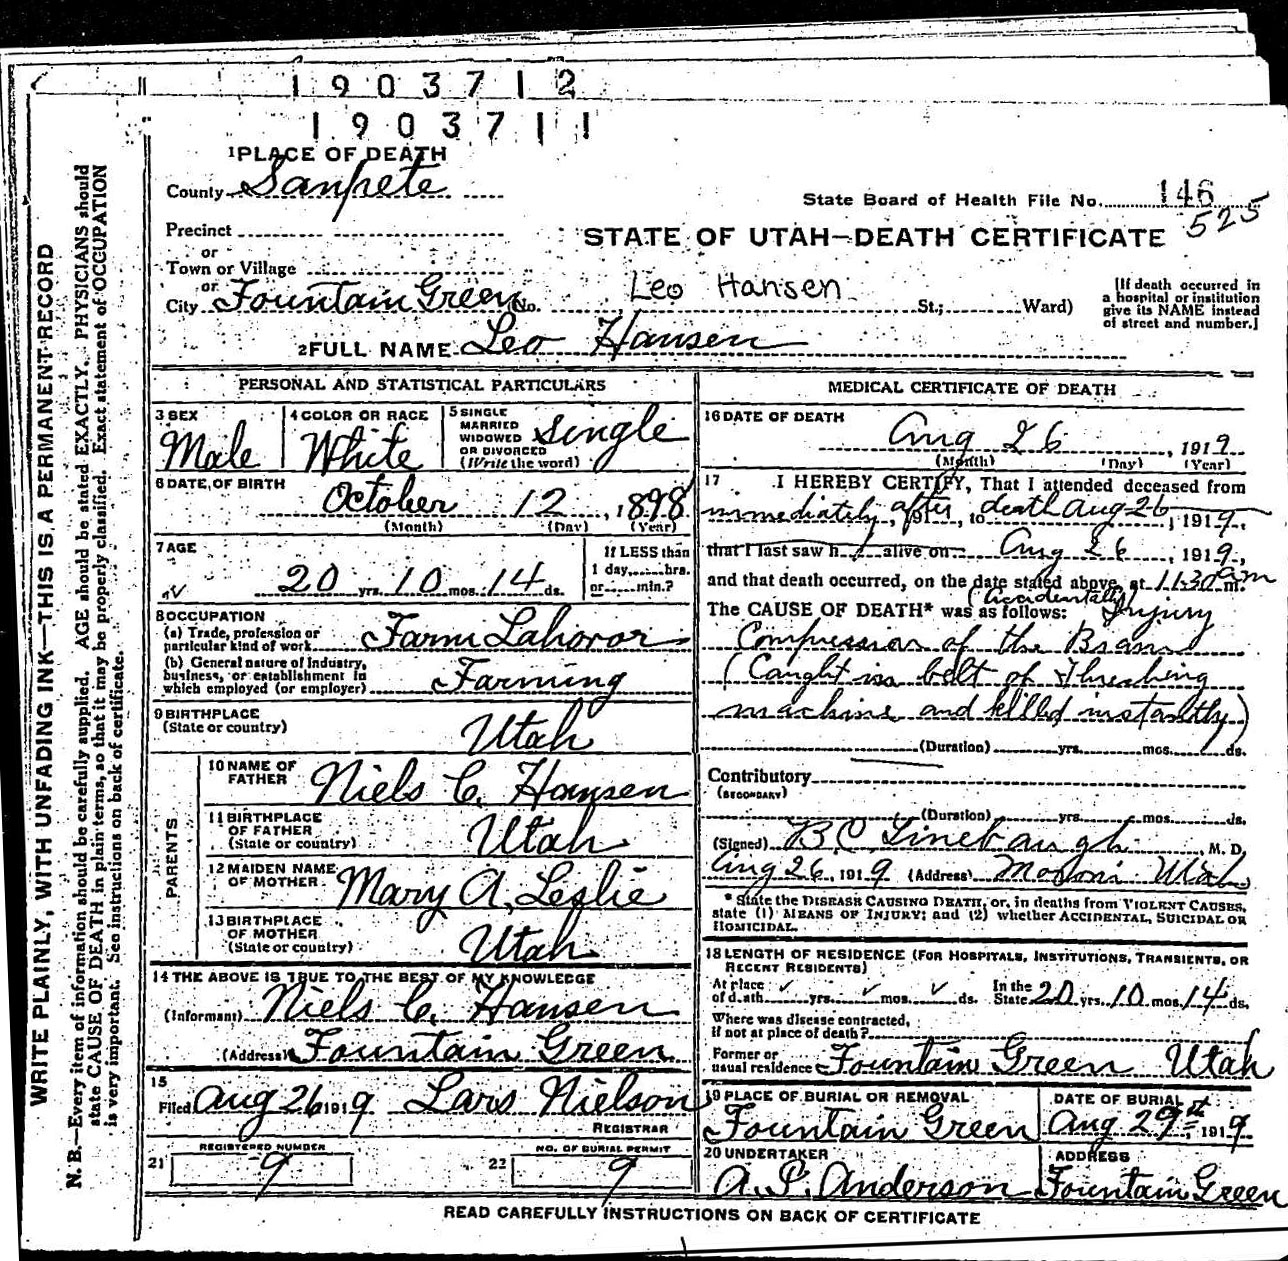 1903712
1903711
1 PLACE OF DEATH
County Sanpete
State Board of Health File No. 146
525
Precinct
or
Town or Village
or
City Fountain Green No. Leo Hansen St.; Ward)
STATE OF UTAH—DEATH CERTIFICATE
[If death occurred in
a hospital or institution
give its NAME instead
of street and number.]
2 FULL NAME Leo Hansen
PERSONAL AND STATISTICAL PARTICULARS
3 SEX
Male
4 COLOR OR RACE
White
5 SINGLE
MARRIED
WIDOWED
OR DIVORCED
(Write the word)
Single
6 DATE OF BIRTH
October 12, 1898
(Month) (Day) (Year)
7 AGE
20 yrs. 10 mos. 14 ds.
If LESS than
1 day, hrs.
or min.?
8 OCCUPATION
(a) Trade, profession or
particular kind of work Farm Laboror
(b) General nature of Industry,
business, or establishment in
which employed (or employer) Farming
9 BIRTHPLACE
(State or country) Utah
PARENTS
10 NAME OF
FATHER Niels C. Hansen
11 BIRTHPLACE
OF FATHER
(State or country) Utah
12 MAIDEN NAME
OF MOTHER Mary A. Leslie
13 BIRTHPLACE
OF MOTHER
(State or country) Utah
14 THE ABOVE IS TRUE TO THE BEST OF MY KNOWLEDGE
(Informant) Niels C. Hansen
(Address) Fountain Green
15
Filed Aug 26 1919 Lars Nielson
REGISTRAR
REGISTERED NUMBER
21 9
NO. OF BURIAL PERMIT
22 9
MEDICAL CERTIFICATE OF DEATH
16 DATE OF DEATH
Aug 26, 1919
(Month) (Day) (Year)
17 I HEREBY CERTIFY, That I attended deceased from
immediately after, 191, to death Aug 26, 1919,
that I last saw h alive on Aug 26, 1919,
and that death occurred, on the date stated above, at 11:30 am m.
(accidental)
The CAUSE OF DEATH* was as follows: Injury
Compression of the Brain
(Caught in belt of Threshing
machine and killed instantly)
(Duration) yrs. mos. ds.
Contributory
(SECONDARY)
(Duration) yrs. mos. ds.
(Signed) B.C. Linebaugh, M. D.
Aug 26, 1919 (Address) Moroni Utah
* State the DISEASE CAUSING DEATH, or, in deaths from VIOLENT CAUSES,
state (1) MEANS OF INJURY; and (2) whether ACCIDENTAL, SUICIDAL OR
HOMICIDAL.
18 LENGTH OF RESIDENCE (FOR HOSPITALS, INSTITUTIONS, TRANSIENTS, OR
RECENT RESIDENTS)
At place
of death yrs. mos. ds. In the
State 20 yrs. 10 mos. 14 ds.
Where was disease contracted,
if not at place of death?
Former or
usual residence Fountain Green Utah
19 PLACE OF BURIAL OR REMOVAL
Fountain Green
DATE OF BURIAL
Aug 29th, 1919
20 UNDERTAKER
A. P. Anderson
ADDRESS
Fountain Green
READ CAREFULLY INSTRUCTIONS ON BACK OF CERTIFICATE
WRITE PLAINLY, WITH UNFADING INK—THIS IS A PERMANENT RECORD
N. B.—Every item of information should be carefully supplied. AGE should be stated EXACTLY. PHYSICIANS should
state CAUSE OF DEATH in plain terms, so that it may be properly classified. Exact statement of OCCUPATION
is very important. See instructions on back of certificate.